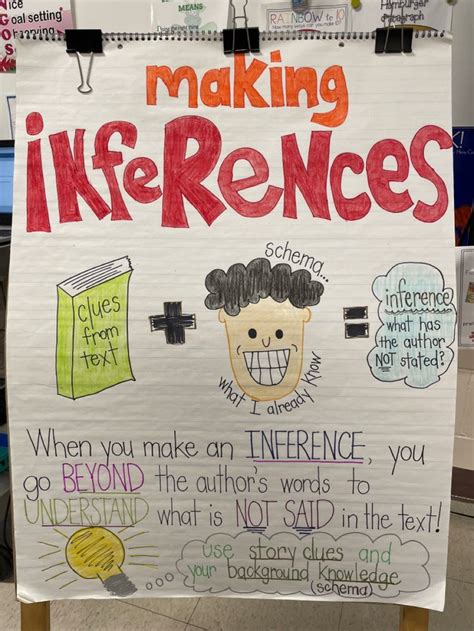 Nice
Goal setting
RAINBOW to 10
Hamburger
Paragraph
making
inferences
clues
from
text
+
schema...
what I already know
=
inference
what has
the author
NOT stated?
When you make an INFERENCE, you
go BEYOND the author's words to
UNDERSTAND what is NOT SAID in the text!
use story clues and
your background knowledge
(schema)